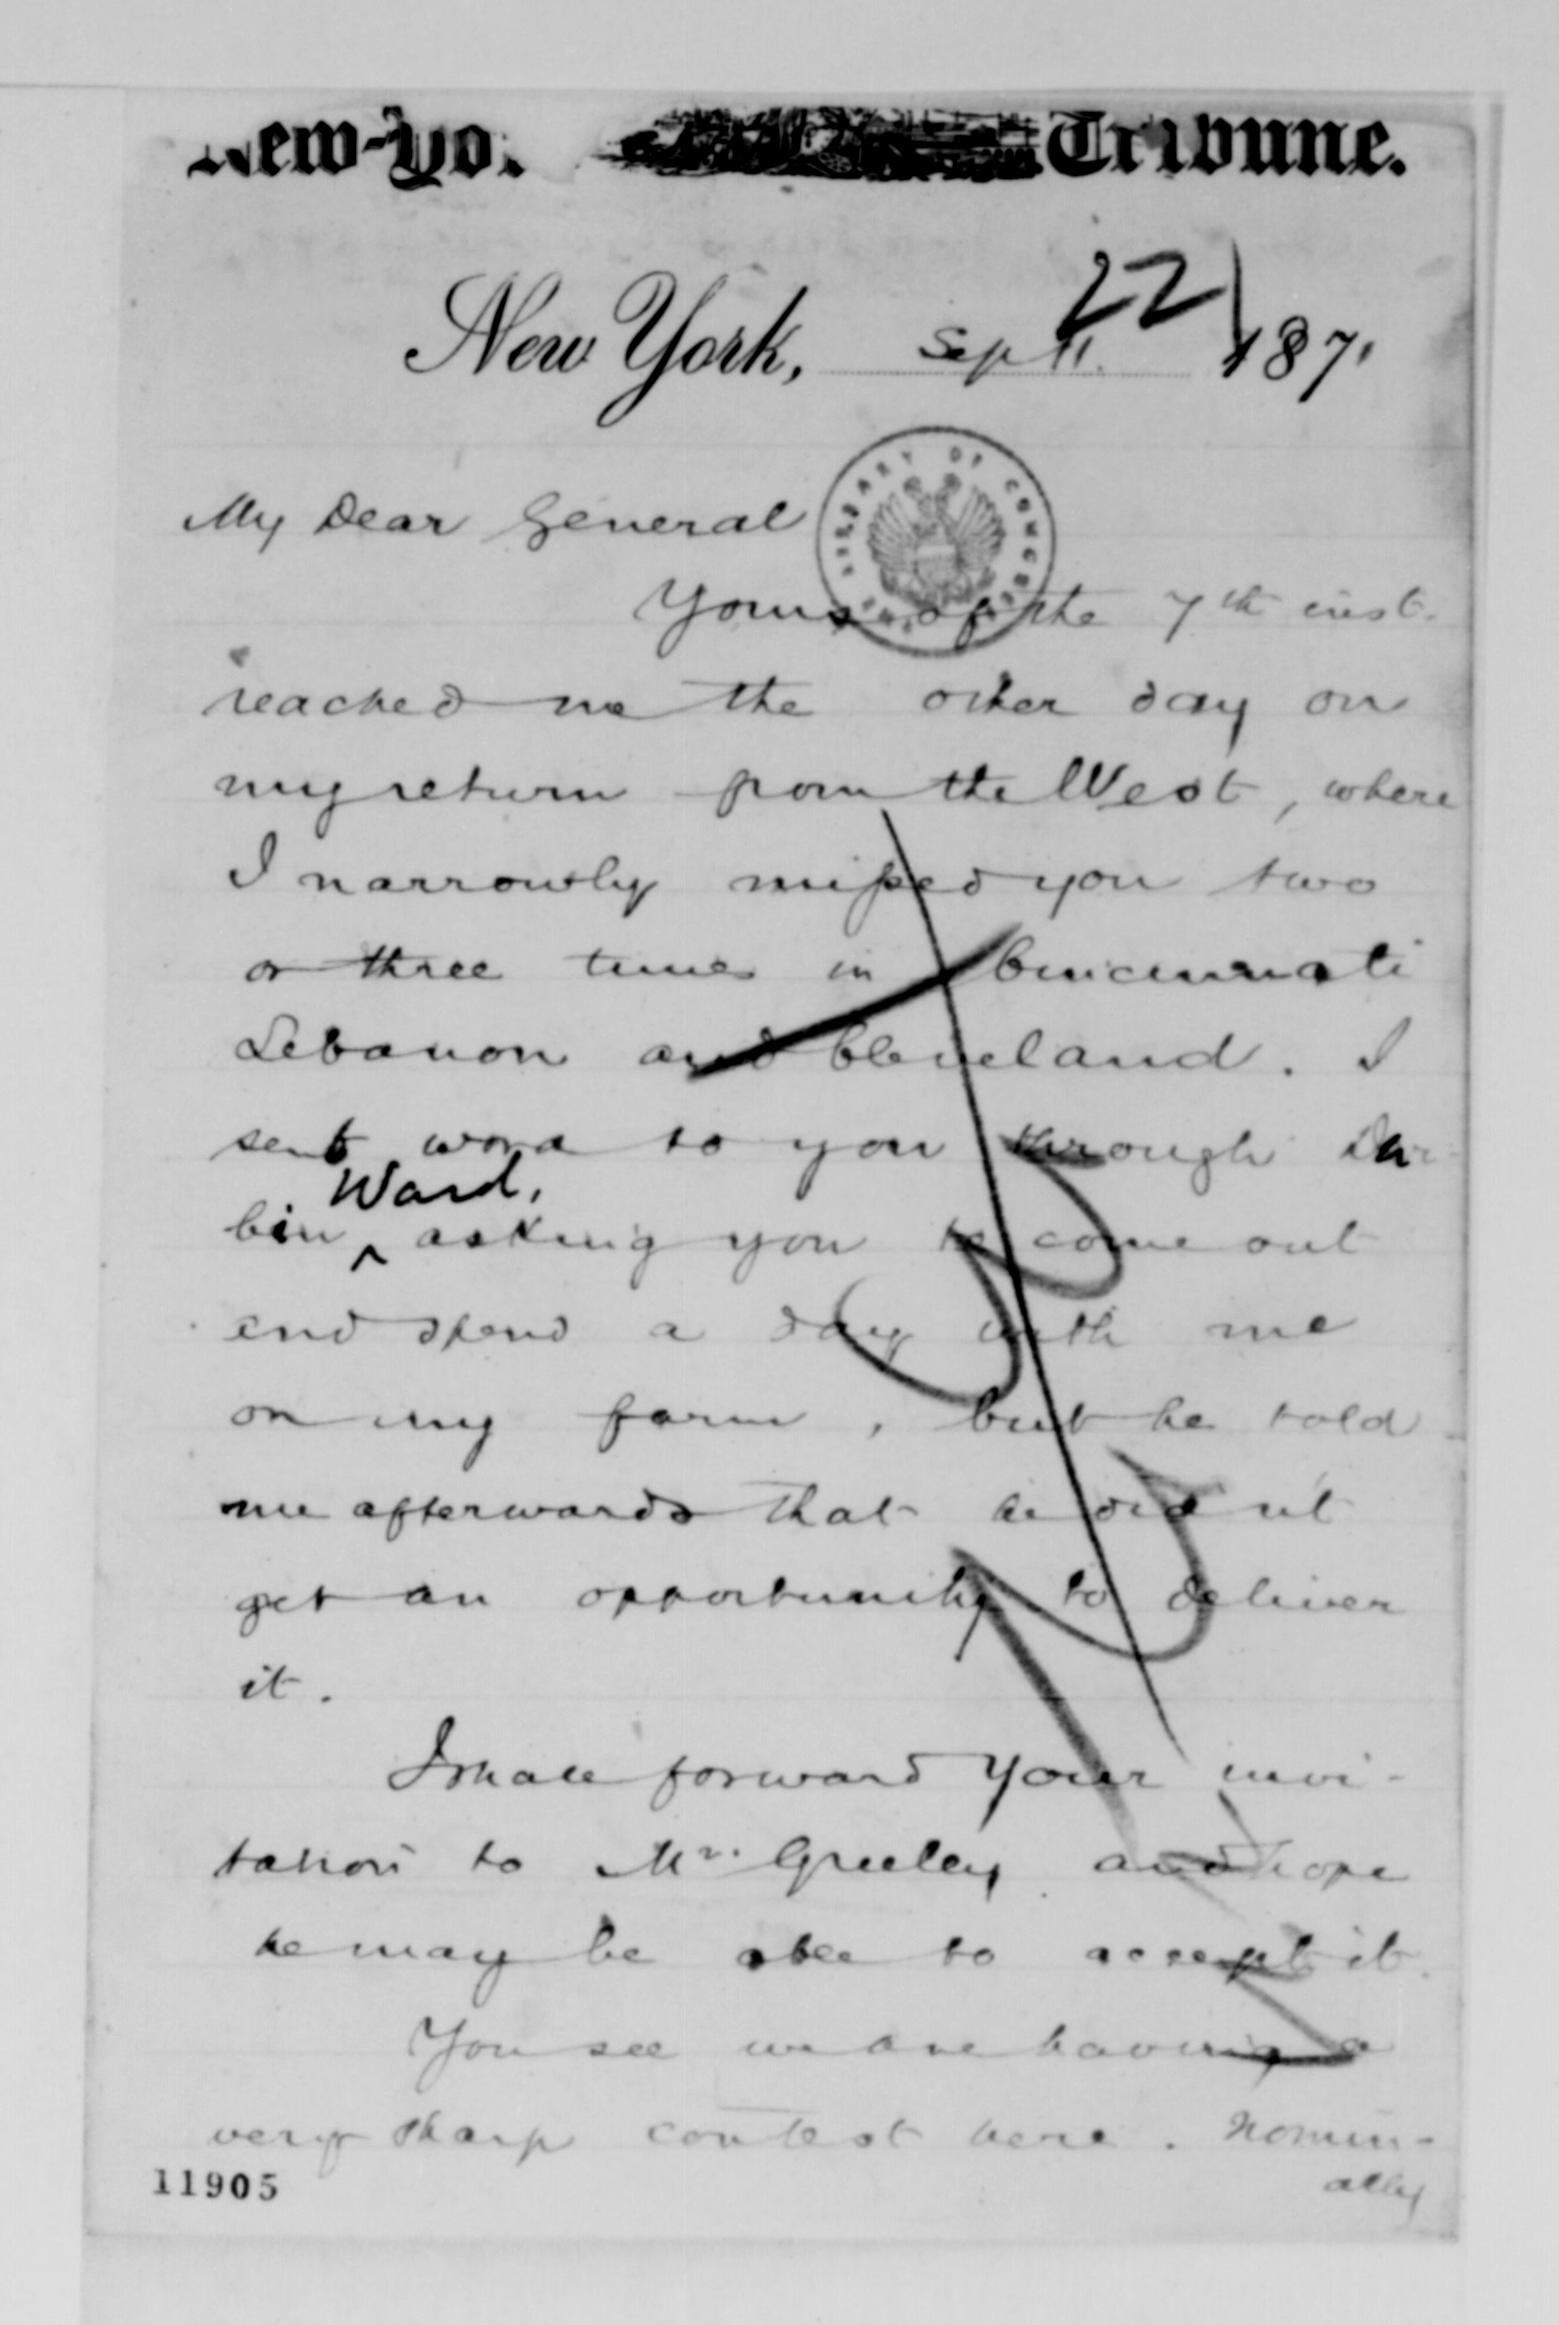 New-York Tribune.
New York, Sept. 22 1871
My Dear General
LIBRARY OF CONGRESS
Yours of the 7th inst.
reached me the other day on
my return from the West, where
I narrowly missed you two
or three times in Cincinnati
Lebanon and Cleveland. I
sent word to you through Dur-
Ward,
bin ^ asking you to come out
and spend a day with me
on my farm, but he told
me afterwards that he did n't
get an opportunity to deliver
it.
I shall forward your invi-
tation to Mr. Greeley and hope
he may be able to accept it.
You see we are having a
very sharp contest here. Nomin-
ally
11905